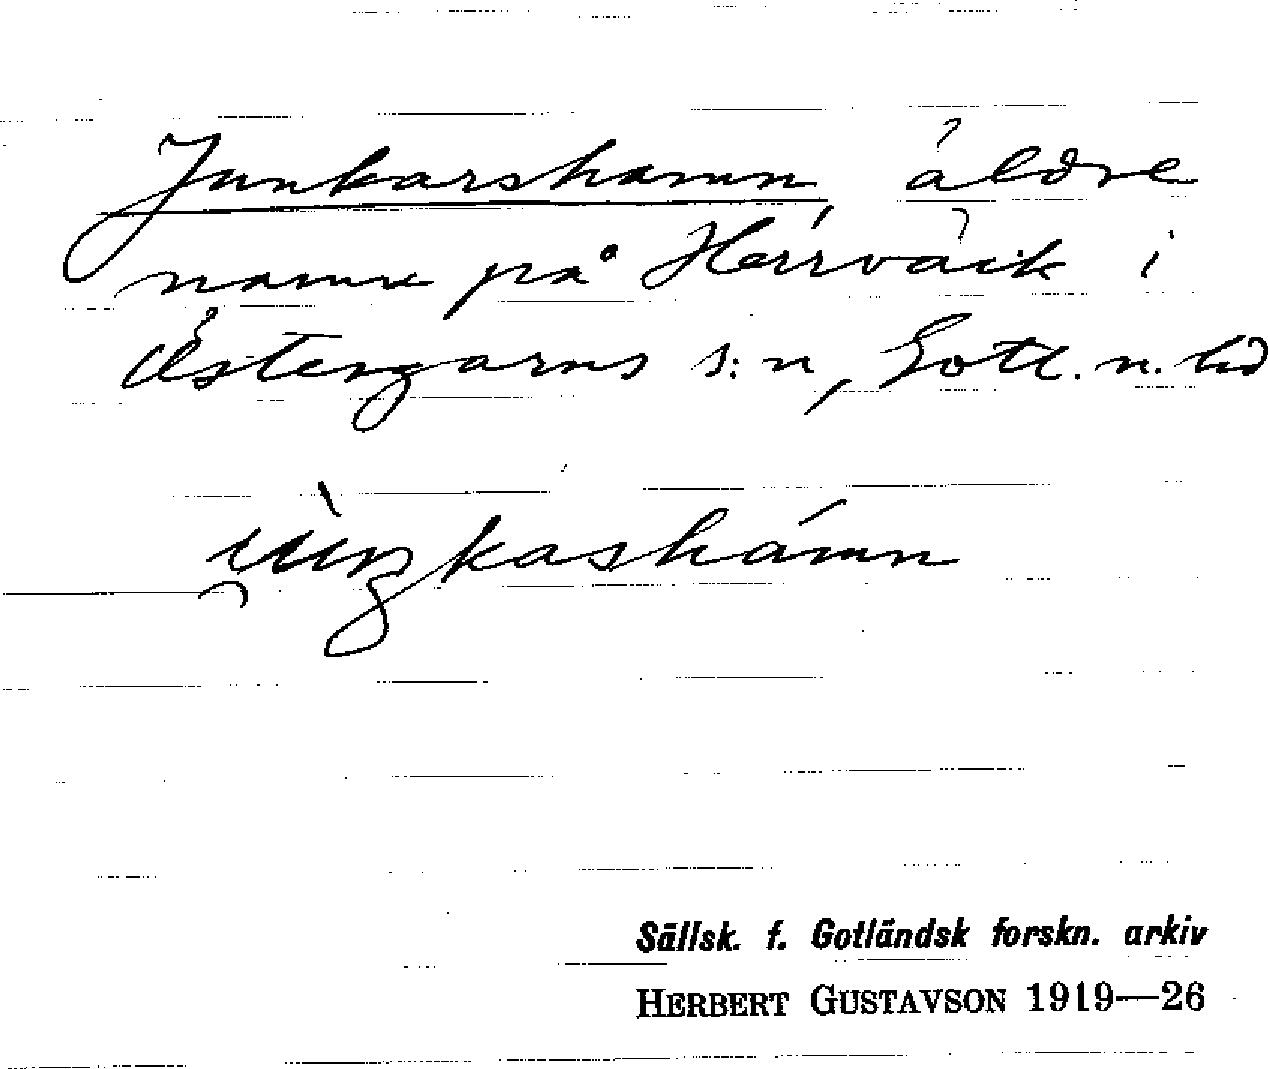 Junkarshamn äldre
namn på Herrväik i
Östergarns s:n, Gotl. n. hd
Sällsk. f. Gotländsk forskn. arkiv
HERBERT GUSTAVSON 1919—26